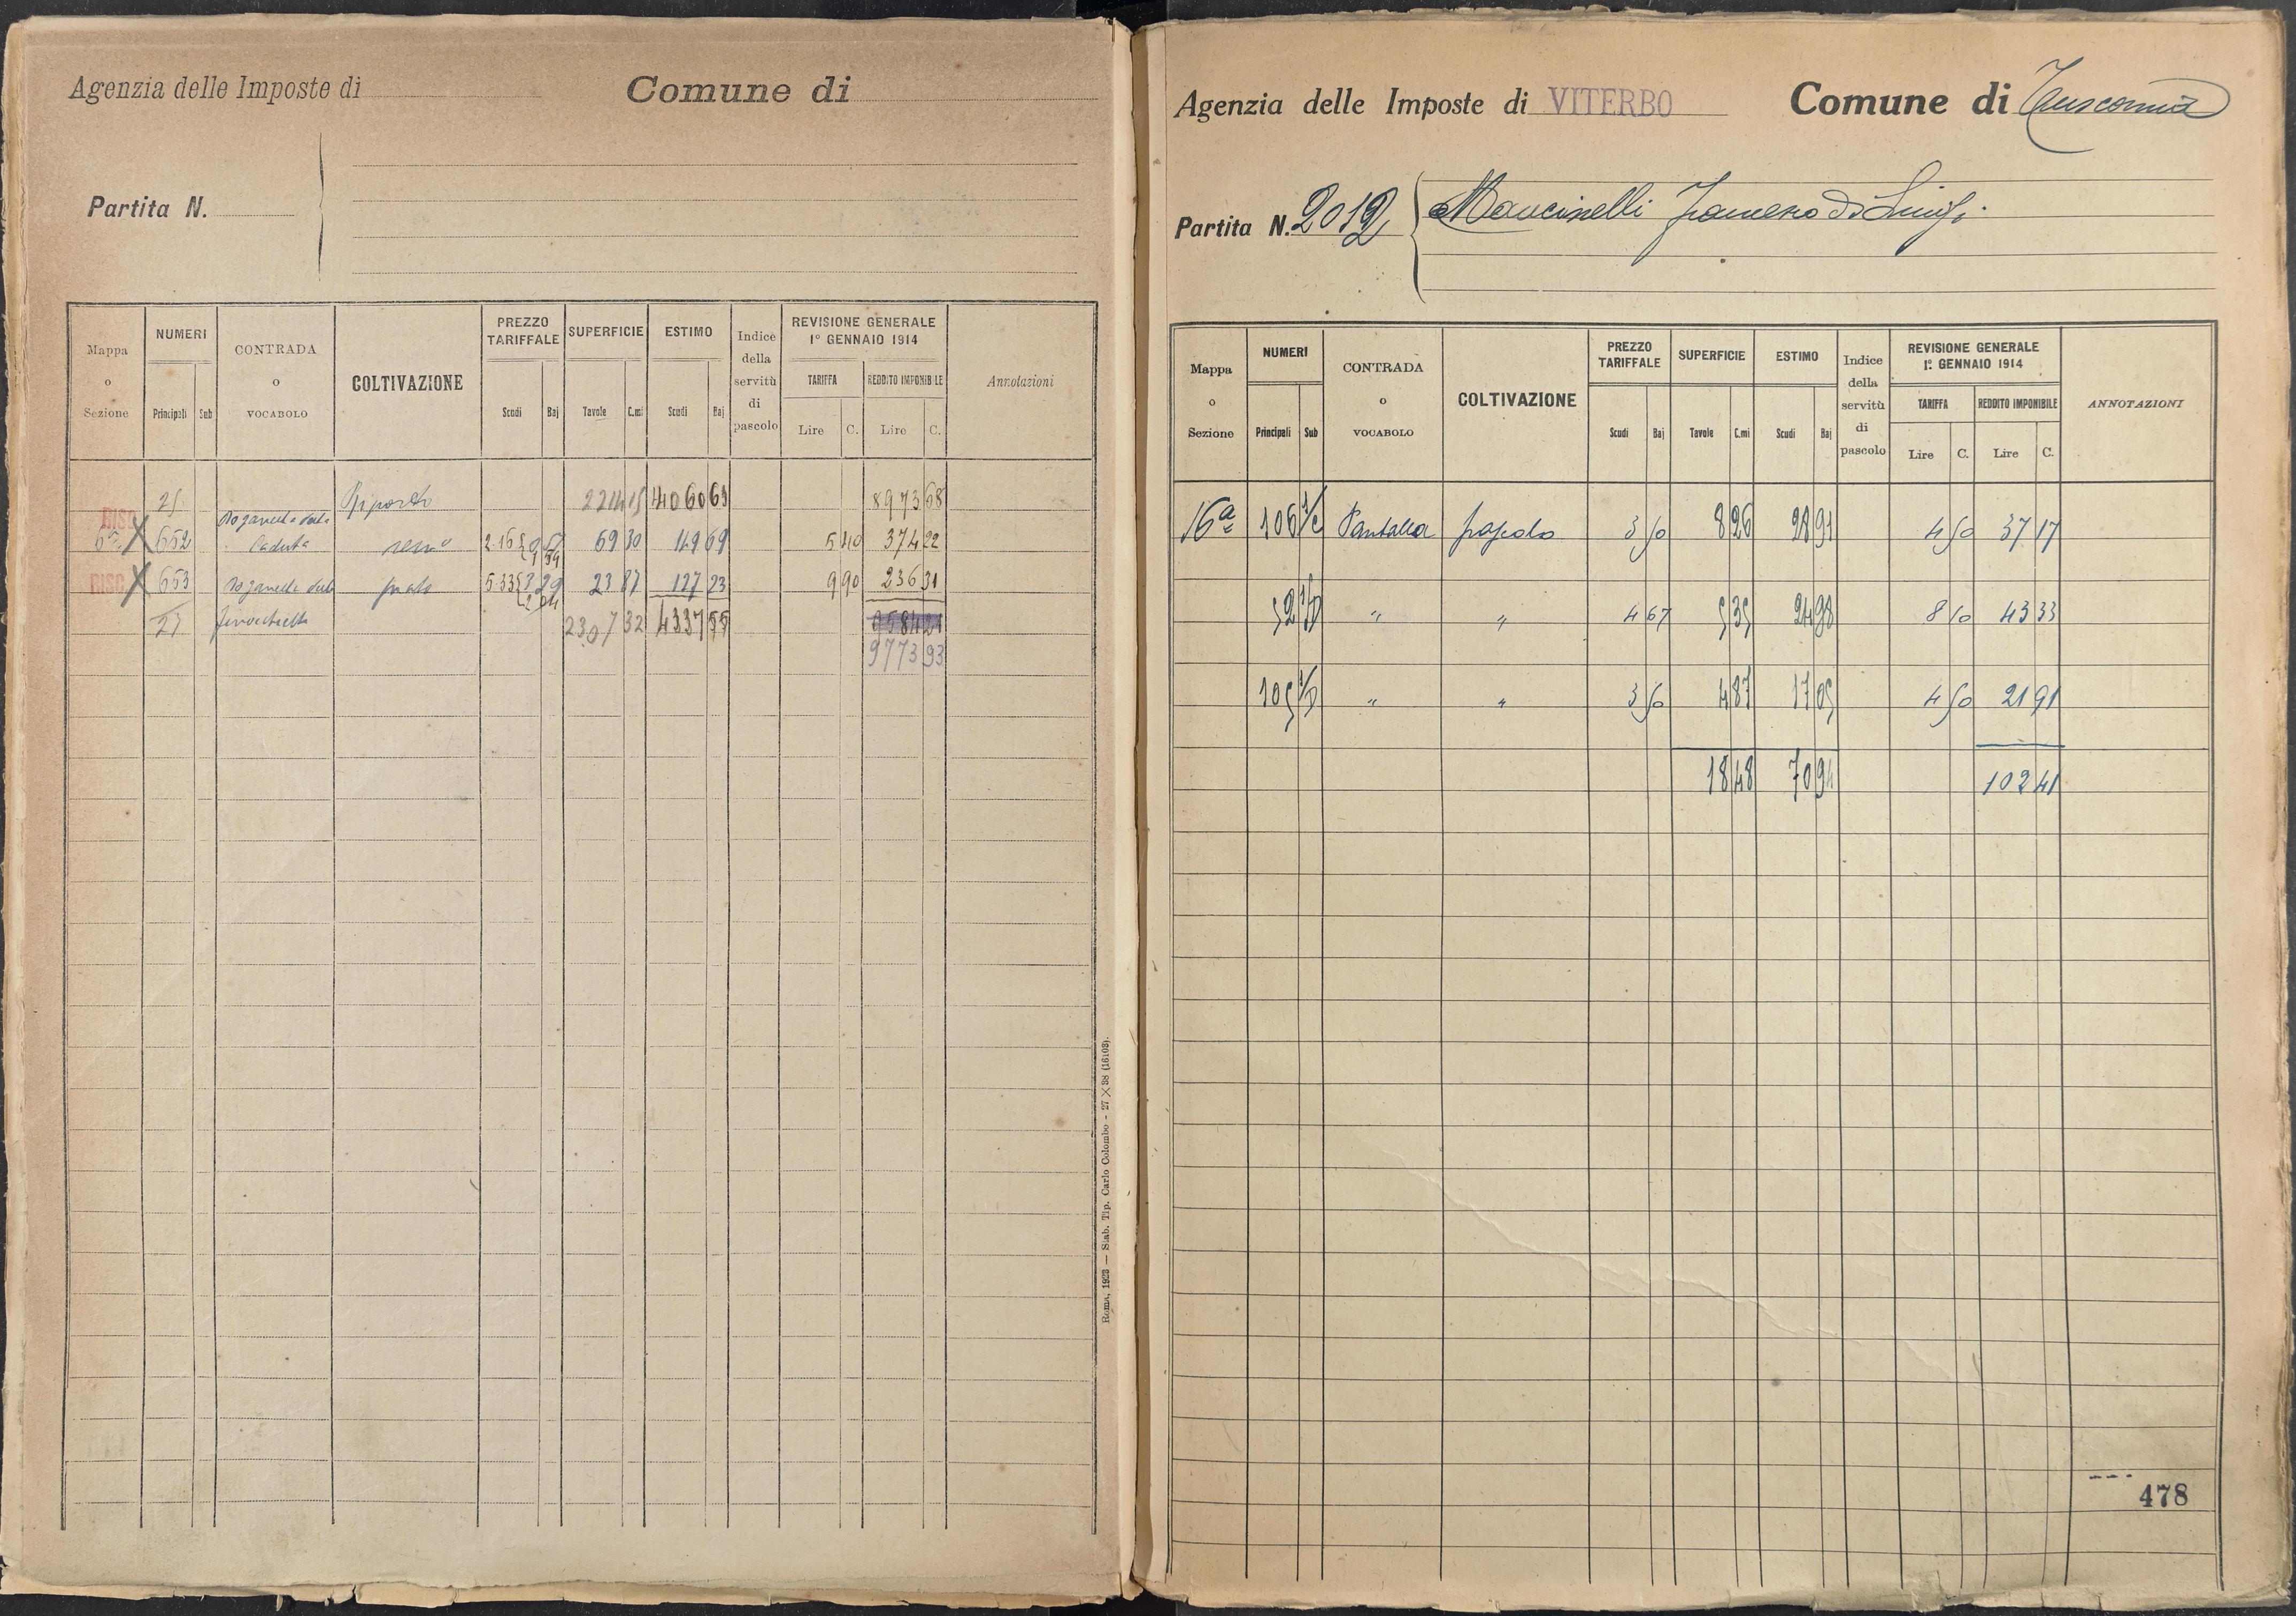 Agenzia delle Imposte di
Comune di
Partita N.
Mappa o Sezione
NUMERI
Principali
Sub
CONTRADA o VOCABOLO
COLTIVAZIONE
PREZZO TARIFFALE
Scudi
Baj
SUPERFICIE
Tavole
C.mi
ESTIMO
Scudi
Baj
Indice della servitù di pascolo
REVISIONE GENERALE
1º GENNAIO 1914
TARIFFA
Lire
C.
REDDITO IMPONIBILE
Lire
C.
Annotazioni
25 Riporto 2214 15 4060 63 8973 68
652 Caduta sem° 2.16 69 30 149 69 5 40 374 22
653 prato 5.33 23 87 127 23 9 90 236 31
27 2307 32 4337 55
9773 93
Roma, 1923 — Stab. Tip. Carlo Colombo - 27 × 38 (16103).
Agenzia delle Imposte di VITERBO
Comune di Tuscania
Partita N. 2012
Mancinelli Francesco di Luigi
Mappa o Sezione
NUMERI
Principali
Sub
CONTRADA o VOCABOLO
COLTIVAZIONE
PREZZO TARIFFALE
Scudi
Baj
SUPERFICIE
Tavole
C.mi
ESTIMO
Scudi
Baj
Indice della servitù di pascolo
REVISIONE GENERALE
1º GENNAIO 1914
TARIFFA
Lire
C.
REDDITO IMPONIBILE
Lire
C.
ANNOTAZIONI
16ª 106 1/c Pantalla 3 50 8 26 28 91 4 50 37 17
52 " " 4 67 5 35 24 98 8 10 43 33
105 " " 3 50 4 87 17 05 4 50 21 91
18 48 70 94 102 41
478